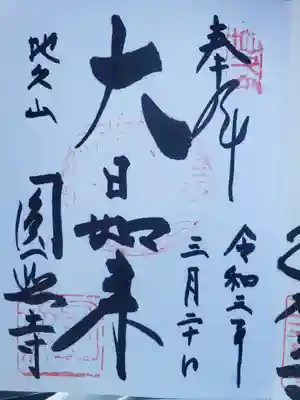 奉拝
令和二年
三月二十日
大日如来
地久山
圓照寺